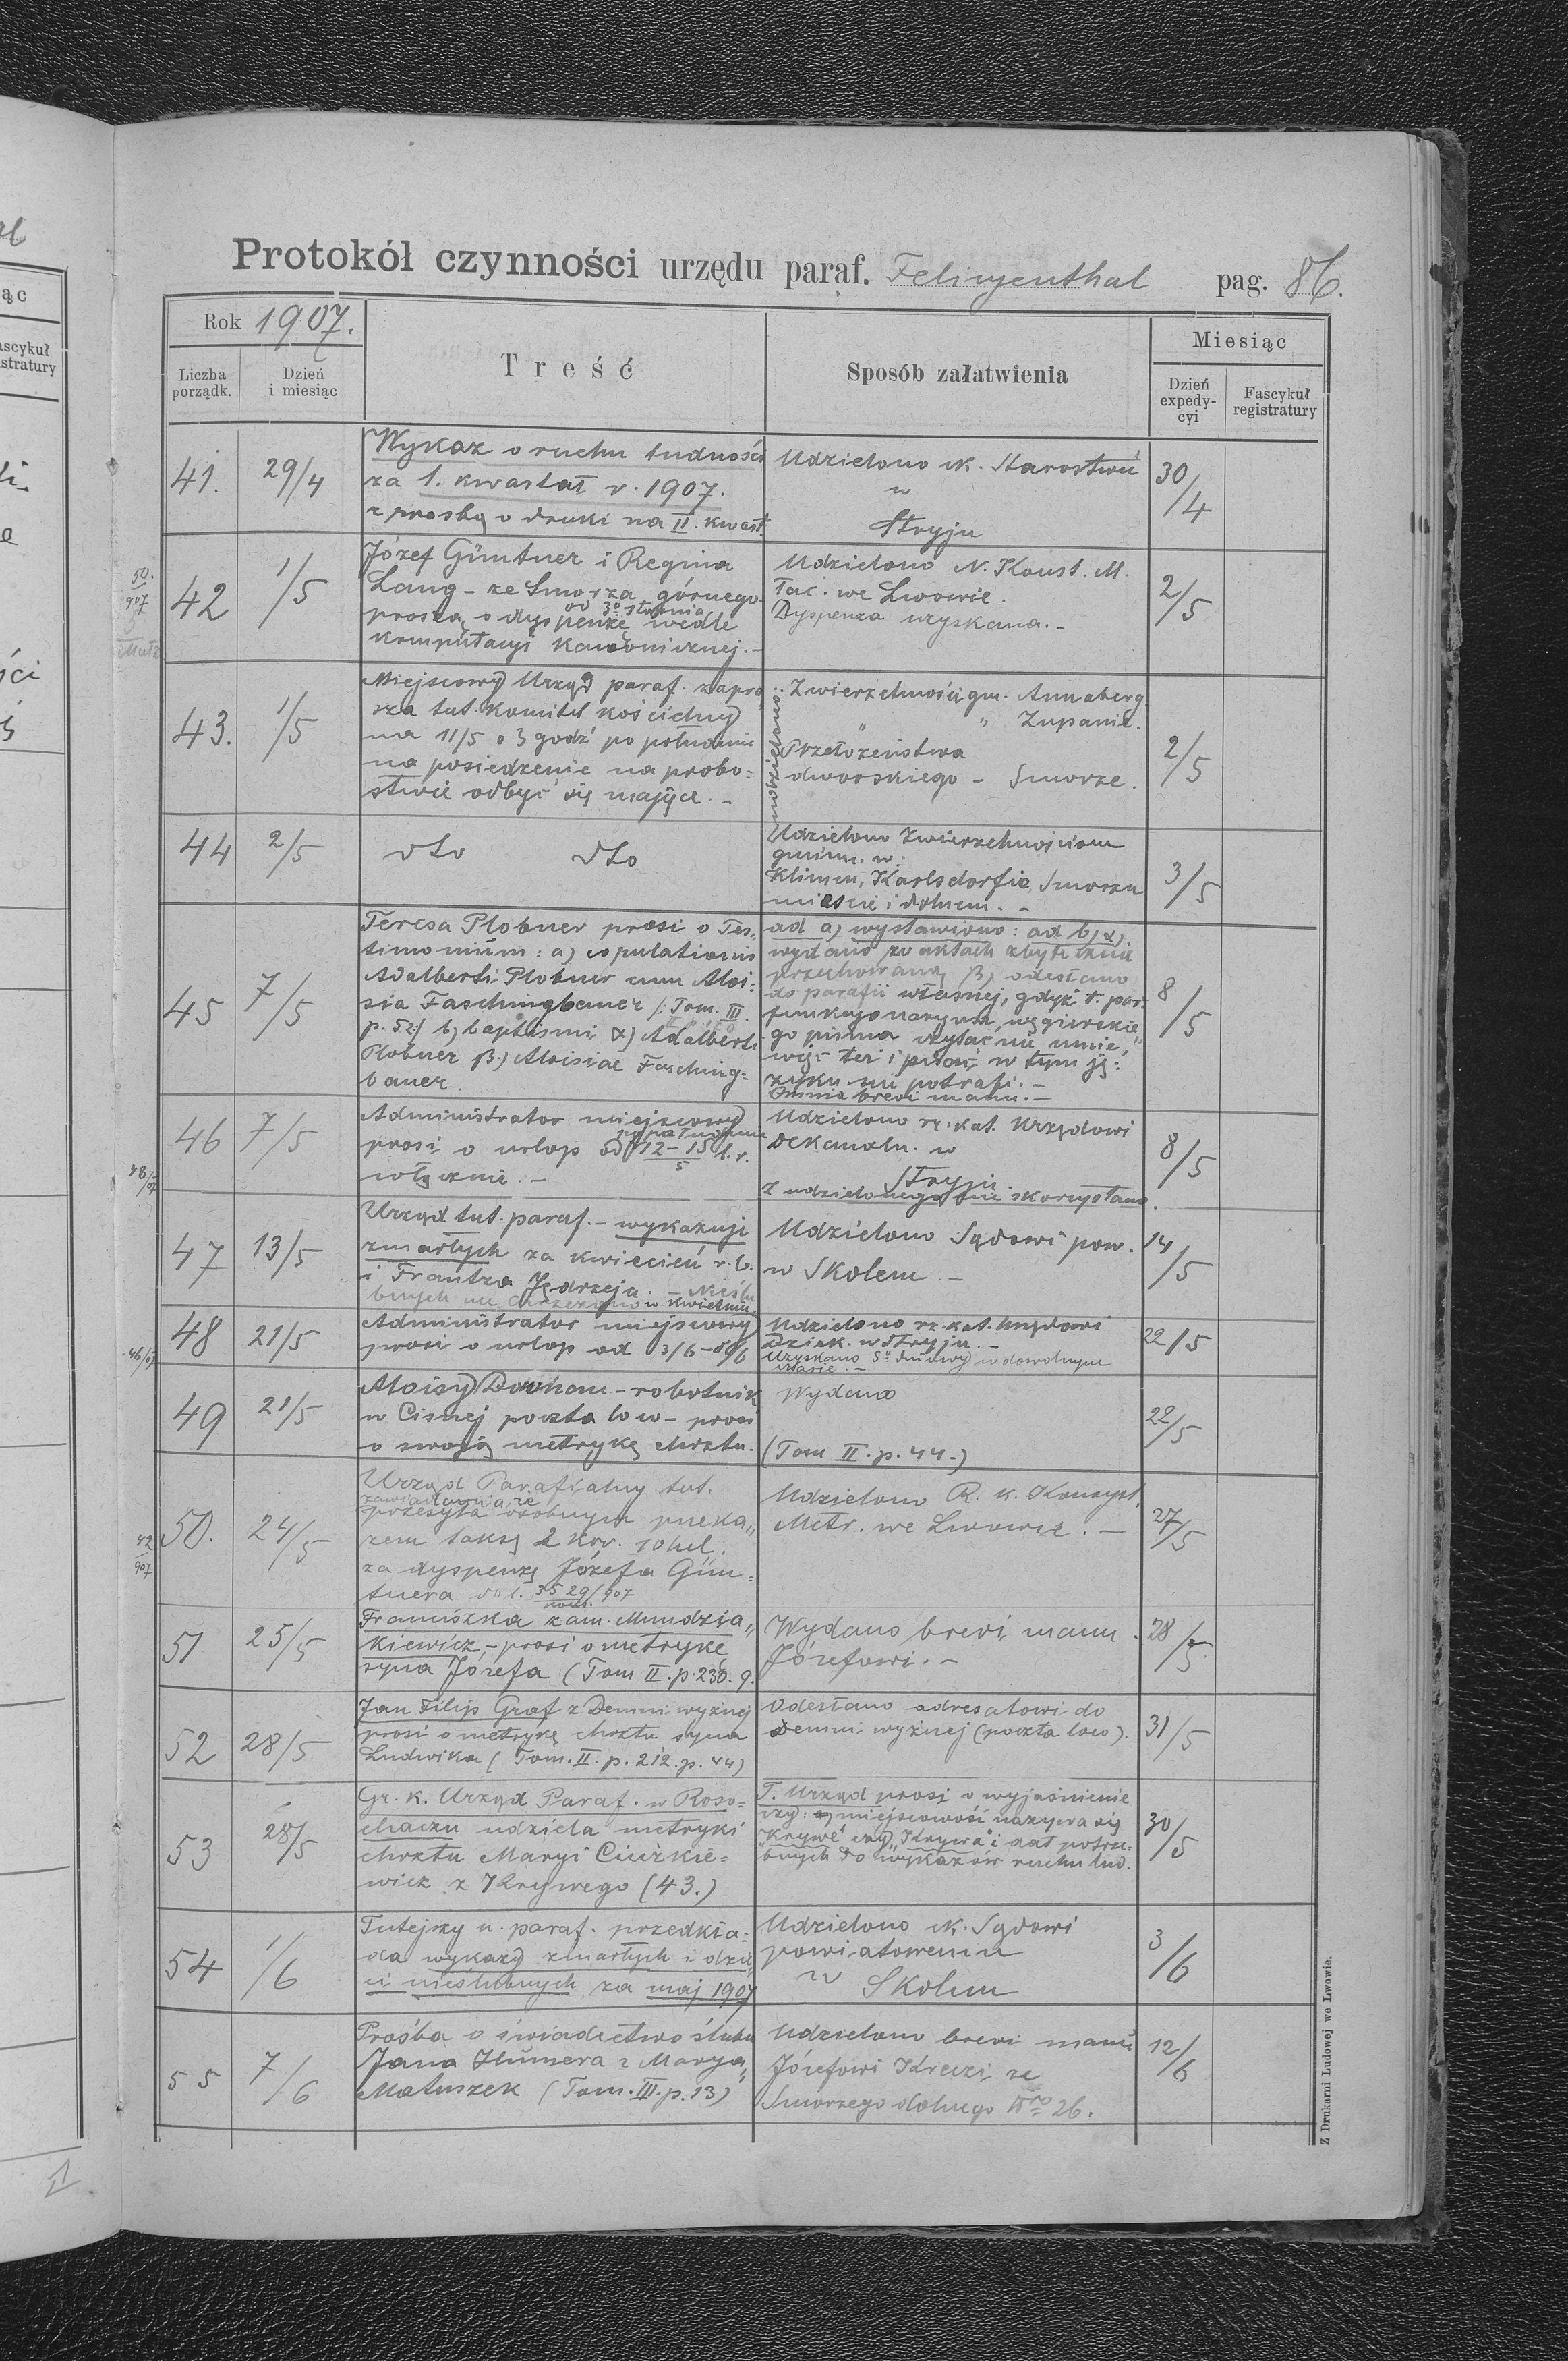 Protokół czynności urzędu paraf. Felizyenthal pag. 86.
Rok 1907.
Liczba porządk.
Dzień i miesiąc
Treść
Sposób załatwienia
Miesiąc
Dzień expedycyi
Fascykuł registratury
41. 29/4
Wykaz o ruchu ludności
za 1. kwartał r. 1907.
z prośbą o druki na II. kwart.
Udzielono ck. Starostwu
w
Stryju
30/4
50./907
42 1/5
Józef Güntner i Regina
Lang - ze Smorza górnego
proszą o dyspenzę wedle
od 3º stopnia
komputacyi kanonicznej. -
Udzielono N. Konst. M.
łac. we Lwowie.
Dyspenza uzyskana. -
2/5
43. 1/5
Miejscowy Urząd paraf. zapra
sza tut. Komitet kościelny
na 11/5 o 3 godź po południu
na posiedzenie na probo=
stwie odbyć się mające. -
Udzielono:
Zwierzchności gm. Annaberg.
" " Żupanie.
Przełożeństwa
dworskiego - Smorze.
2/5
44 2/5
dto dto
Udzielono Zwierzchnościom
gminn. w:
Klimcu, Karlsdorfie, Smorzu
mieście i dolnem. -
3/5
45 7/5
Teresa Plobner prosi o Tes=
timonium: a) copulationis
Adalberti Plobner cum Aloi=
sia Faschingbauer /: Tom. III.
p. 52:/ b) baptismi α) Adalberti
Plobner β) Aloisiae Fasching=
bauer.
ad a) wystawiono: ad b) α)
wydano po aktach zbytecznie
przechowaną β) odesłano
do parafii własnej, gdyż t. par.
funkcyonaryusz węgierskie
go pisma czytać nie umie
więc też i pisać w tym ję=
zyku nie potrafi. -
Omnia brevi manu. -
8/5
46 7/5
Administrator miejscowy
prosi o urlop od 12-15/5 b.r.
włącznie. -
Udzielono rz. kat. Urzędowi
Dekanaln. w
Stryju.
Z udzielonego nie skorzystano.
8/5
48/07
47 13/5
Urząd tut. paraf. - wykazuje
zmarłych za kwiecień r. b.
i Frantza Jędrzeja. - Nieślu
bnych nie chrzczono w kwietniu.
Udzielono Sądowi pow.
w Skolem. -
14/5
48 21/5
Administrator miejscowy
prosi o urlop od 3/6 - 8/6
Udzielono rz. kat. Urzędowi
Dziek. w Stryju. -
Uzyskano 5º dniowy w dowolnym
czasie. -
22/5
46/07
49 21/5
Aloisy - robotnik
w Cisnej poczta loco - prosi
o swoją metrykę chrztu.
Wydano
(Tom II. p. 44.)
22/5
42/907
50. 24/5
Urząd Parafialny tut.
zawiadamia, że
przesyła osobnym przeka=
zem taksę 2 kor. 10 hel.
za dyspenzę Józefa Gün=
tnera do l. 3529/907
Udzielono R. k. Konsyst.
Metr. we Lwowie. -
27/5
51 25/5
Franciszka zam. Mundzia=
kiewicz - prosi o metrykę
syna Józefa (Tom II. p. 236. 9.
Wydano brevi manu
Józefowi. -
28/5
52 28/5
Jan Filip Graf z Demni wyżnej
prosi o metrykę chrztu syna
Ludwika (Tom. II. p. 212. p. 44)
Odesłano adresatowi do
Demni wyżnej (poczta loco).
31/5
53 28/5
Gr. k. Urząd Paraf. w Roso=
chaczu udziela metryki
chrztu Maryi Cieżkie=
wicz z Krywego (43.)
T. Urząd prosi o wyjaśnienie
czy: miejscowość nazywa się
"Krywe" czy "Krywa" i dat potrze=
bnych do wykazów ruchu lud.
30/5
54 1/6
Tutejszy u. paraf. przedkła=
da wykazy zmarłych i dzie
ci nieślubnych za maj 1907
Udzielono ck. Sądowi
powiatowemu
w Skolem
3/6
55 7/6
Prośba o świadectwo ślubu
Jana z Maryą
Matuszek (Tom. III. p. 13)
Udzielono brevi manu
Józefowi ze
Smorzego dolnego Nro 26.
12/6
Z Drukarni Ludowej we Lwowie.